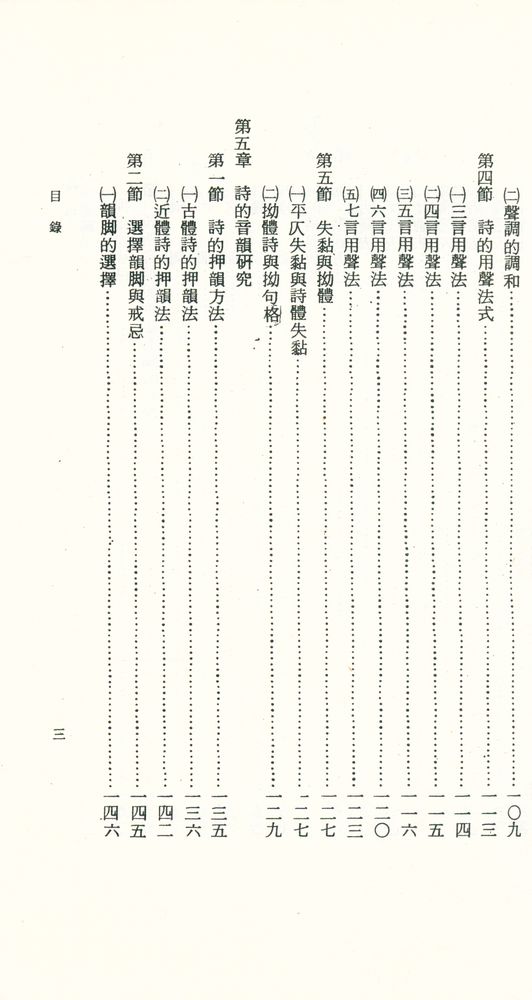 ㈡聲調的調和……一〇九
第四節　詩的用聲法式……一一三
㈠三言用聲法……一一四
㈡四言用聲法……一一五
㈢五言用聲法……一一六
㈣六言用聲法……一二〇
㈤七言用聲法……一二三
第五節　失黏與拗體……一二七
㈠平仄失黏與詩體失黏……一二七
㈡拗體詩與拗句格……一二九
第五章　詩的音韻研究
第一節　詩的押韻方法……一三五
㈠古體詩的押韻法……一三六
㈡近體詩的押韻法……一四二
第二節　選擇韻脚與戒忌……一四五
㈠韻脚的選擇……一四六
目錄
三